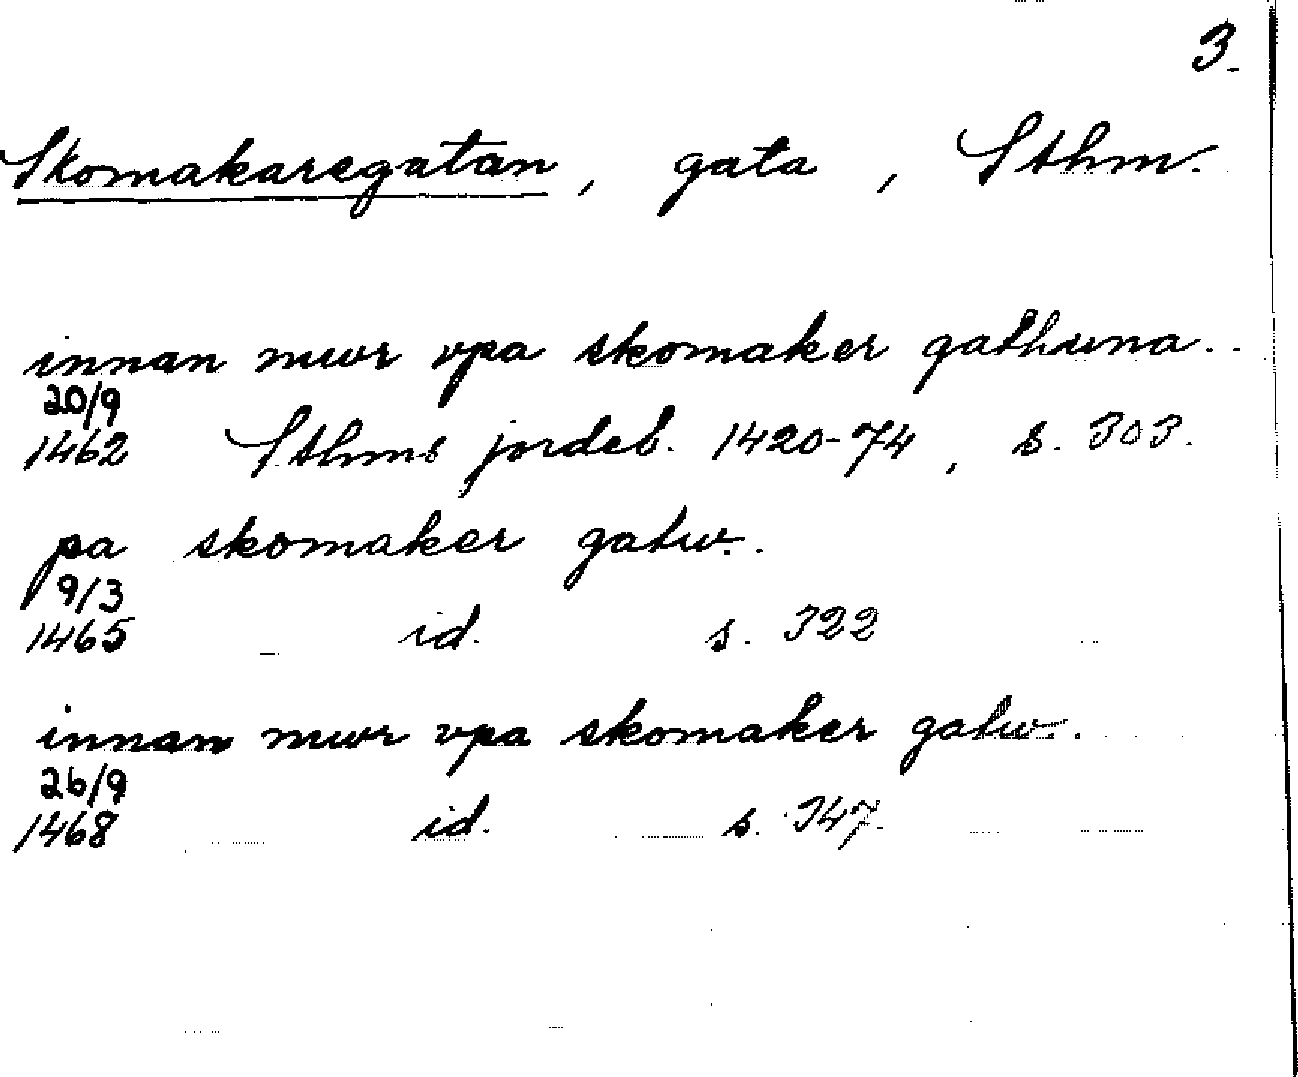 3.
Skomakaregatan, gata, Sthm.
innan mwr vpa skomaker gathuna..
20/9
1462 Sthms jordeb. 1420-74, s. 303.
pa skomaker gatw.
9/3
1465 id. s. 322
innan mwr vpa skomaker gatw.
26/9
1468 id. s. 347.